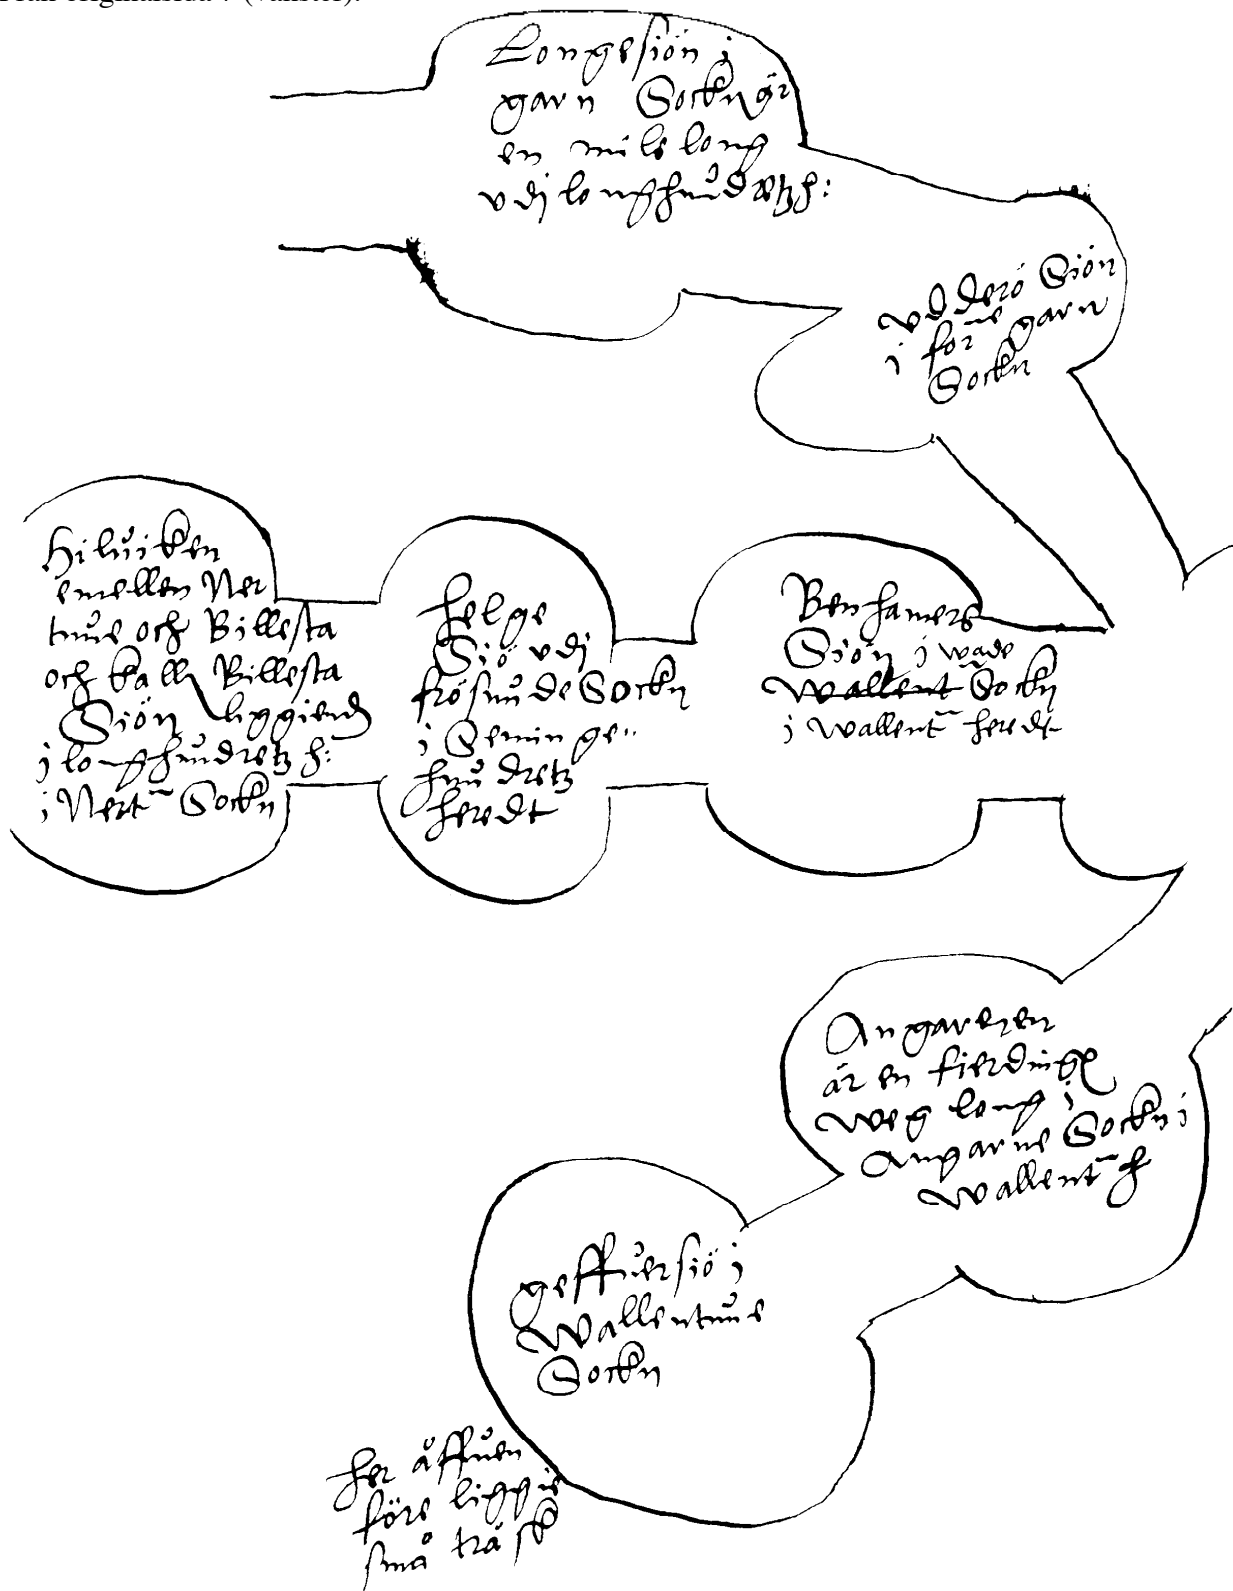 Longesiön i
garn Sockn är
en mile long
vdj longhundretzh:
vdderö Siön
i forne garn
Sockn
Hiluiken
emellen Ner
tune och Billesta
och kall Billesta
Siön liggiend
i longhundretz h:
i Nert Sockn
helge
Siö vdj
frösunde Sockn
i Seminge
hundretz
heredt
Benhamers
Siön i wade
wallent Sockn
i wallent heredt
Angareren
är en fierding
weg long i
Angarne Sockn i
wallent h
geffuersiö i
Wallentune
Sockn
her åffuen
före liggie
små träsk